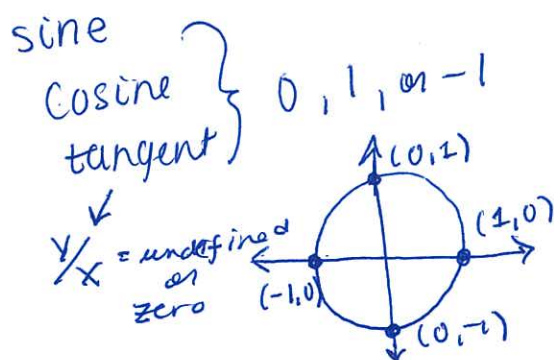 sine
cosine
tangent
0, 1, or -1
y/x = undefined
or
zero
(0,1)
(1,0)
(-1,0)
(0,-1)